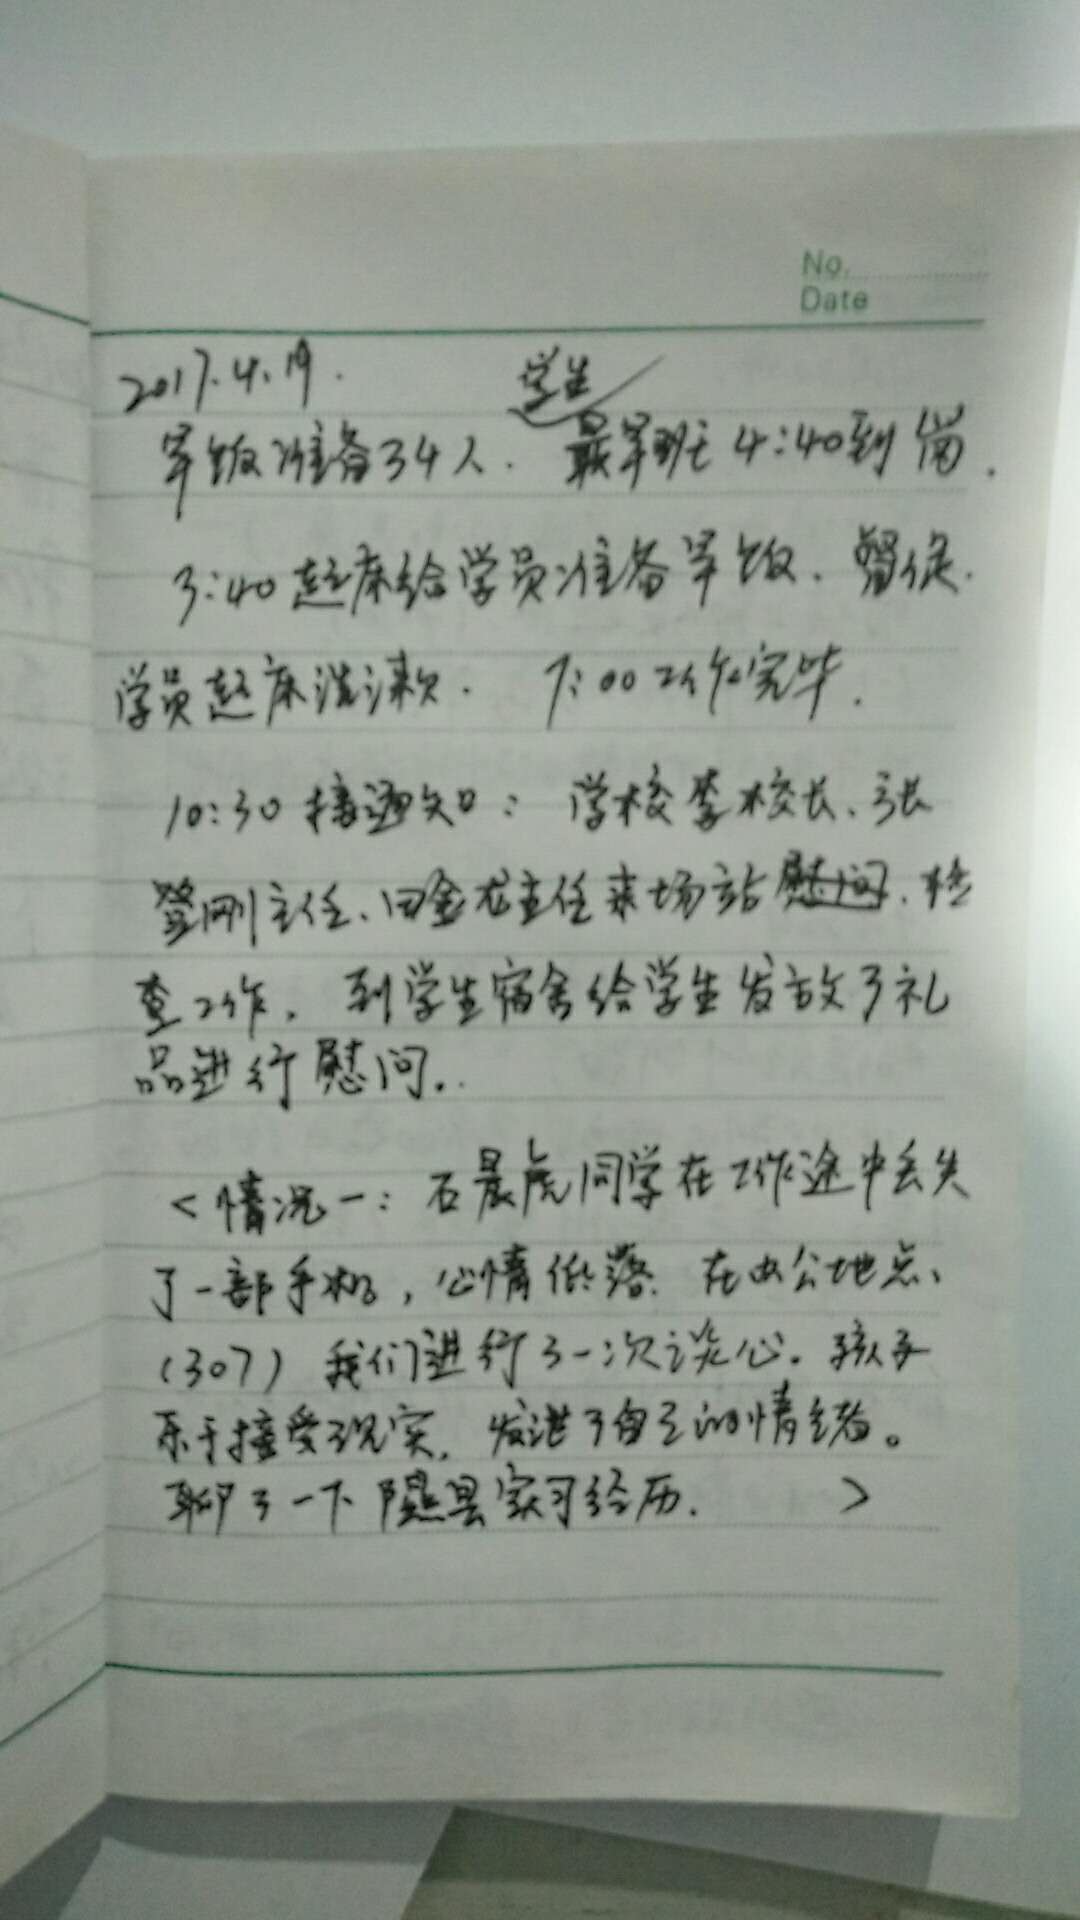 No.
Date
2017.4.19.
学生
早饭准备34人. 最早班 4:40到岗.
3:40起床给学员准备早饭. 督促.
学员起床洗漱. 7:00工作完毕.
10:30接通知: 学校李校长、张
登刚主任、田金龙主任来场站慰问、检
查工作. 到学生宿舍给学生发放了礼
品进行慰问..
<情况一: 石晨虎同学在工作途中丢失
了一部手机, 心情低落. 在办公地点、
(307) 我们进行了一次谈心。孩子
乐于接受现实, 发泄了自己的情绪。
聊了一下隰县实习经历. >